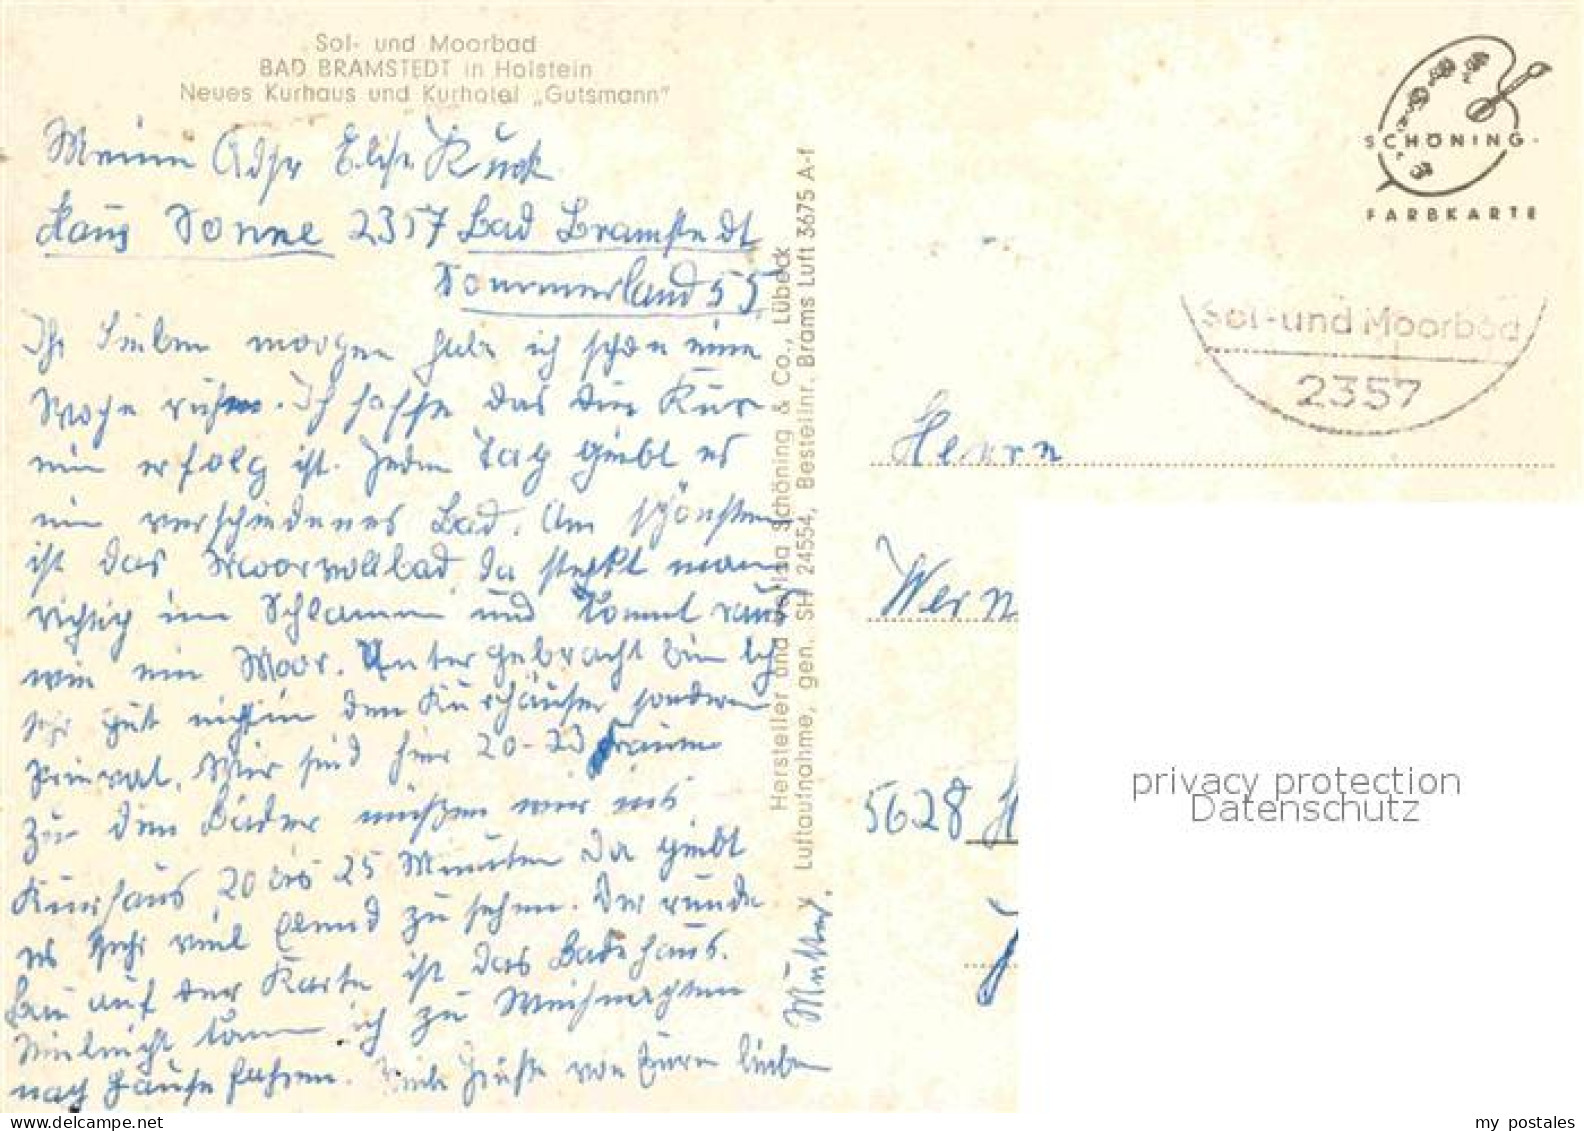 Sol- und Moorbad
BAD BRAMSTEDT in Holstein
Neues Kurhaus und Kurhotel „Gutsmann"
Meine Adr Elise
Haus Sonne 2357 Bad Bramstedt
Sommerland 55
Ihr Lieben morgen habe ich schon eine
Woche rum. Ich hoffe das die Kur
ein erfolg ist. Jeden Tag giebt es
ein verschiedenes Bad. Am schönsten
ist das Moorvollbad da steckt man
richtig im Schlamm und kommt raus
wie ein Moor. Untergebracht bin ich
sehr gut nicht in den Kurhäuser sondern
Privat. Wir sind hier 20-23 Frauen
zu den Bäder müßen wir ins
Kurhaus 20 bis 25 Minuten Da giebt
es sehr viel Elend zu sehen. Der runde
Bau auf der Karte ist das Badehaus.
Vielleicht kann ich zu Weihnachten
nach Hause fahren. Viele Grüße von Eurer lieben
Mutter.
Hersteller und Verlag Schöning & Co., Lübeck
Luftaufnahme, gen. SH 24554, Bestellnr. Brams Luft 3675 A-f
SCHÖNING
FARBKARTE
Sol-und Moorbad
2357
Herrn
Wern
5628 H
privacy protection
Datenschutz
my postales